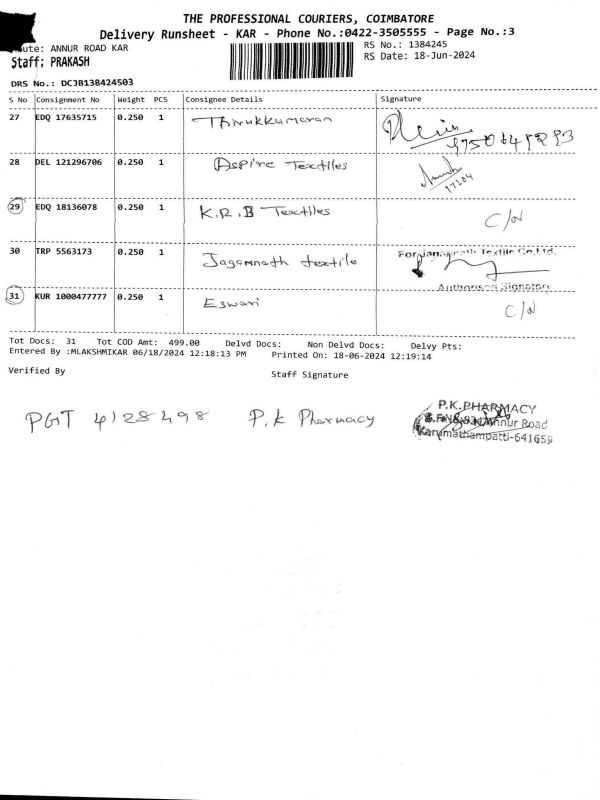 THE PROFESSIONAL COURIERS, COIMBATORE
Delivery Runsheet - KAR - Phone No.:0422-3505555 - Page No.:3
ute: ANNUR ROAD KAR
RS No.: 1384245
Staff: PRAKASH
RS Date: 18-Jun-2024
DRS No.: DCJB138424503
S No Consignment No Weight PCS Consignee Details Signature
27 EDQ 17635715 0.250 1 Thirukkumaran
28 DEL 121296706 0.250 1 Aspire Textiles
17204
29 EDQ 18136078 0.250 1 K.R.B Textiles C/N
30 TRP 5563173 0.250 1 Jagamnath textile
Textile Co.Ltd.
Authorised Signatory
31 KUR 1000477777 0.250 1 Eswari C/N
Tot Docs: 31 Tot COD Amt: 499.00 Delvd Docs: Non Delvd Docs: Delvy Pts:
Entered By :MLAKSHMIKAR 06/18/2024 12:18:13 PM Printed On: 18-06-2024 12:19:14
Verified By Staff Signature
PGT 4128498 P.K Pharmacy
P.K.PHARMACY
Annur Road
Karumathampatti-641659